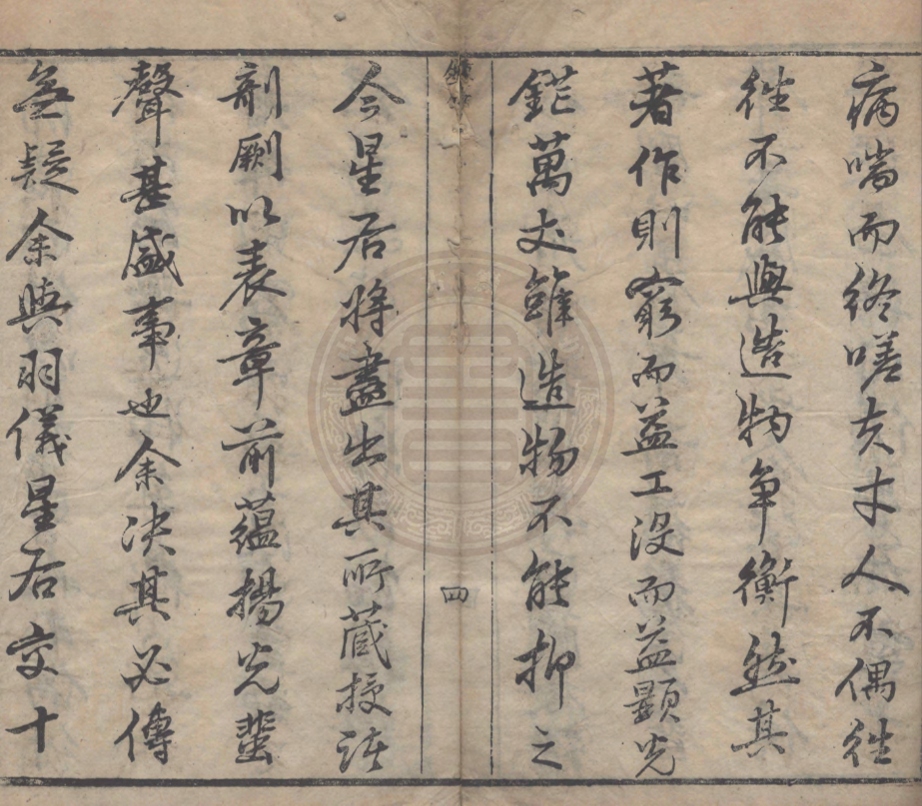 病喘而終嗟夫才人不偶往
往不能與造物爭衡然其
著作則窮而益工沒而益顯光
鋩萬丈雖造物不能抑之
四
今星君將盡出其所藏授諸
剞劂以表章前蘊揚光蜚
聲甚盛事也余決其必傳
無疑余與羽儀星君交十